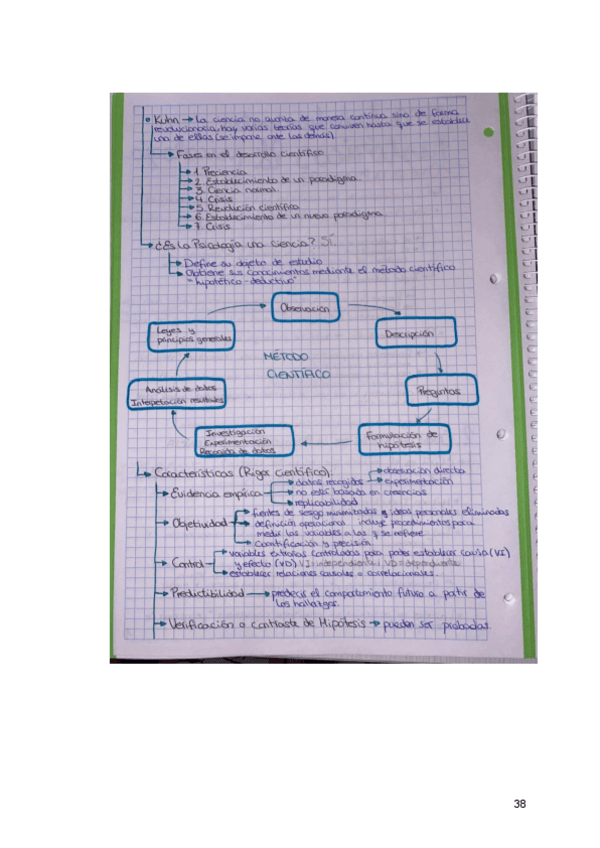 Kuhn → La ciencia no avanza de manera continua sino de forma
revolucionaria, hay varias teorías que conviven hasta que se establece
una de ellas (se impone ante las demás)
→ Fases en el desarrollo científico
→ 1. Preciencia
→ 2. Establecimiento de un paradigma
→ 3. Ciencia normal
→ 4. Crisis
→ 5. Revolución científica
→ 6. Establecimiento de un nuevo paradigma
→ 7. Crisis
→ ¿Es la Psicología una ciencia? SÍ
→ Define su objeto de estudio
→ Obtiene sus conocimientos mediante el método científico
"hipotético-deductivo"
Observación
Leyes y
principios generales
Descripción
MÉTODO
CIENTÍFICO
Análisis de datos
Interpretación resultados
Preguntas
Investigación
Experimentación
Recogida de datos
Formulación de
hipótesis
→ Características (Rigor científico).
→ Evidencia empírica
→ datos recogidos
→ observación directa
→ experimentación
→ no está basada en creencias
→ replicabilidad
→ Objetividad
→ fuentes de sesgo minimizadas e ideas personales eliminadas
→ definición operacional incluye procedimientos para
medir las variables a las q se refiere
→ Cuantificación y precisión
→ Control
→ variables extrañas controladas para poder establecer causa (VI)
y efecto (VD) VI=independiente / VD=dependiente
→ establecer relaciones causales o correlacionales.
→ Predictibilidad → predecir el comportamiento futuro a partir de
los hallazgos.
→ Verificación o contraste de Hipótesis → pueden ser probadas
38